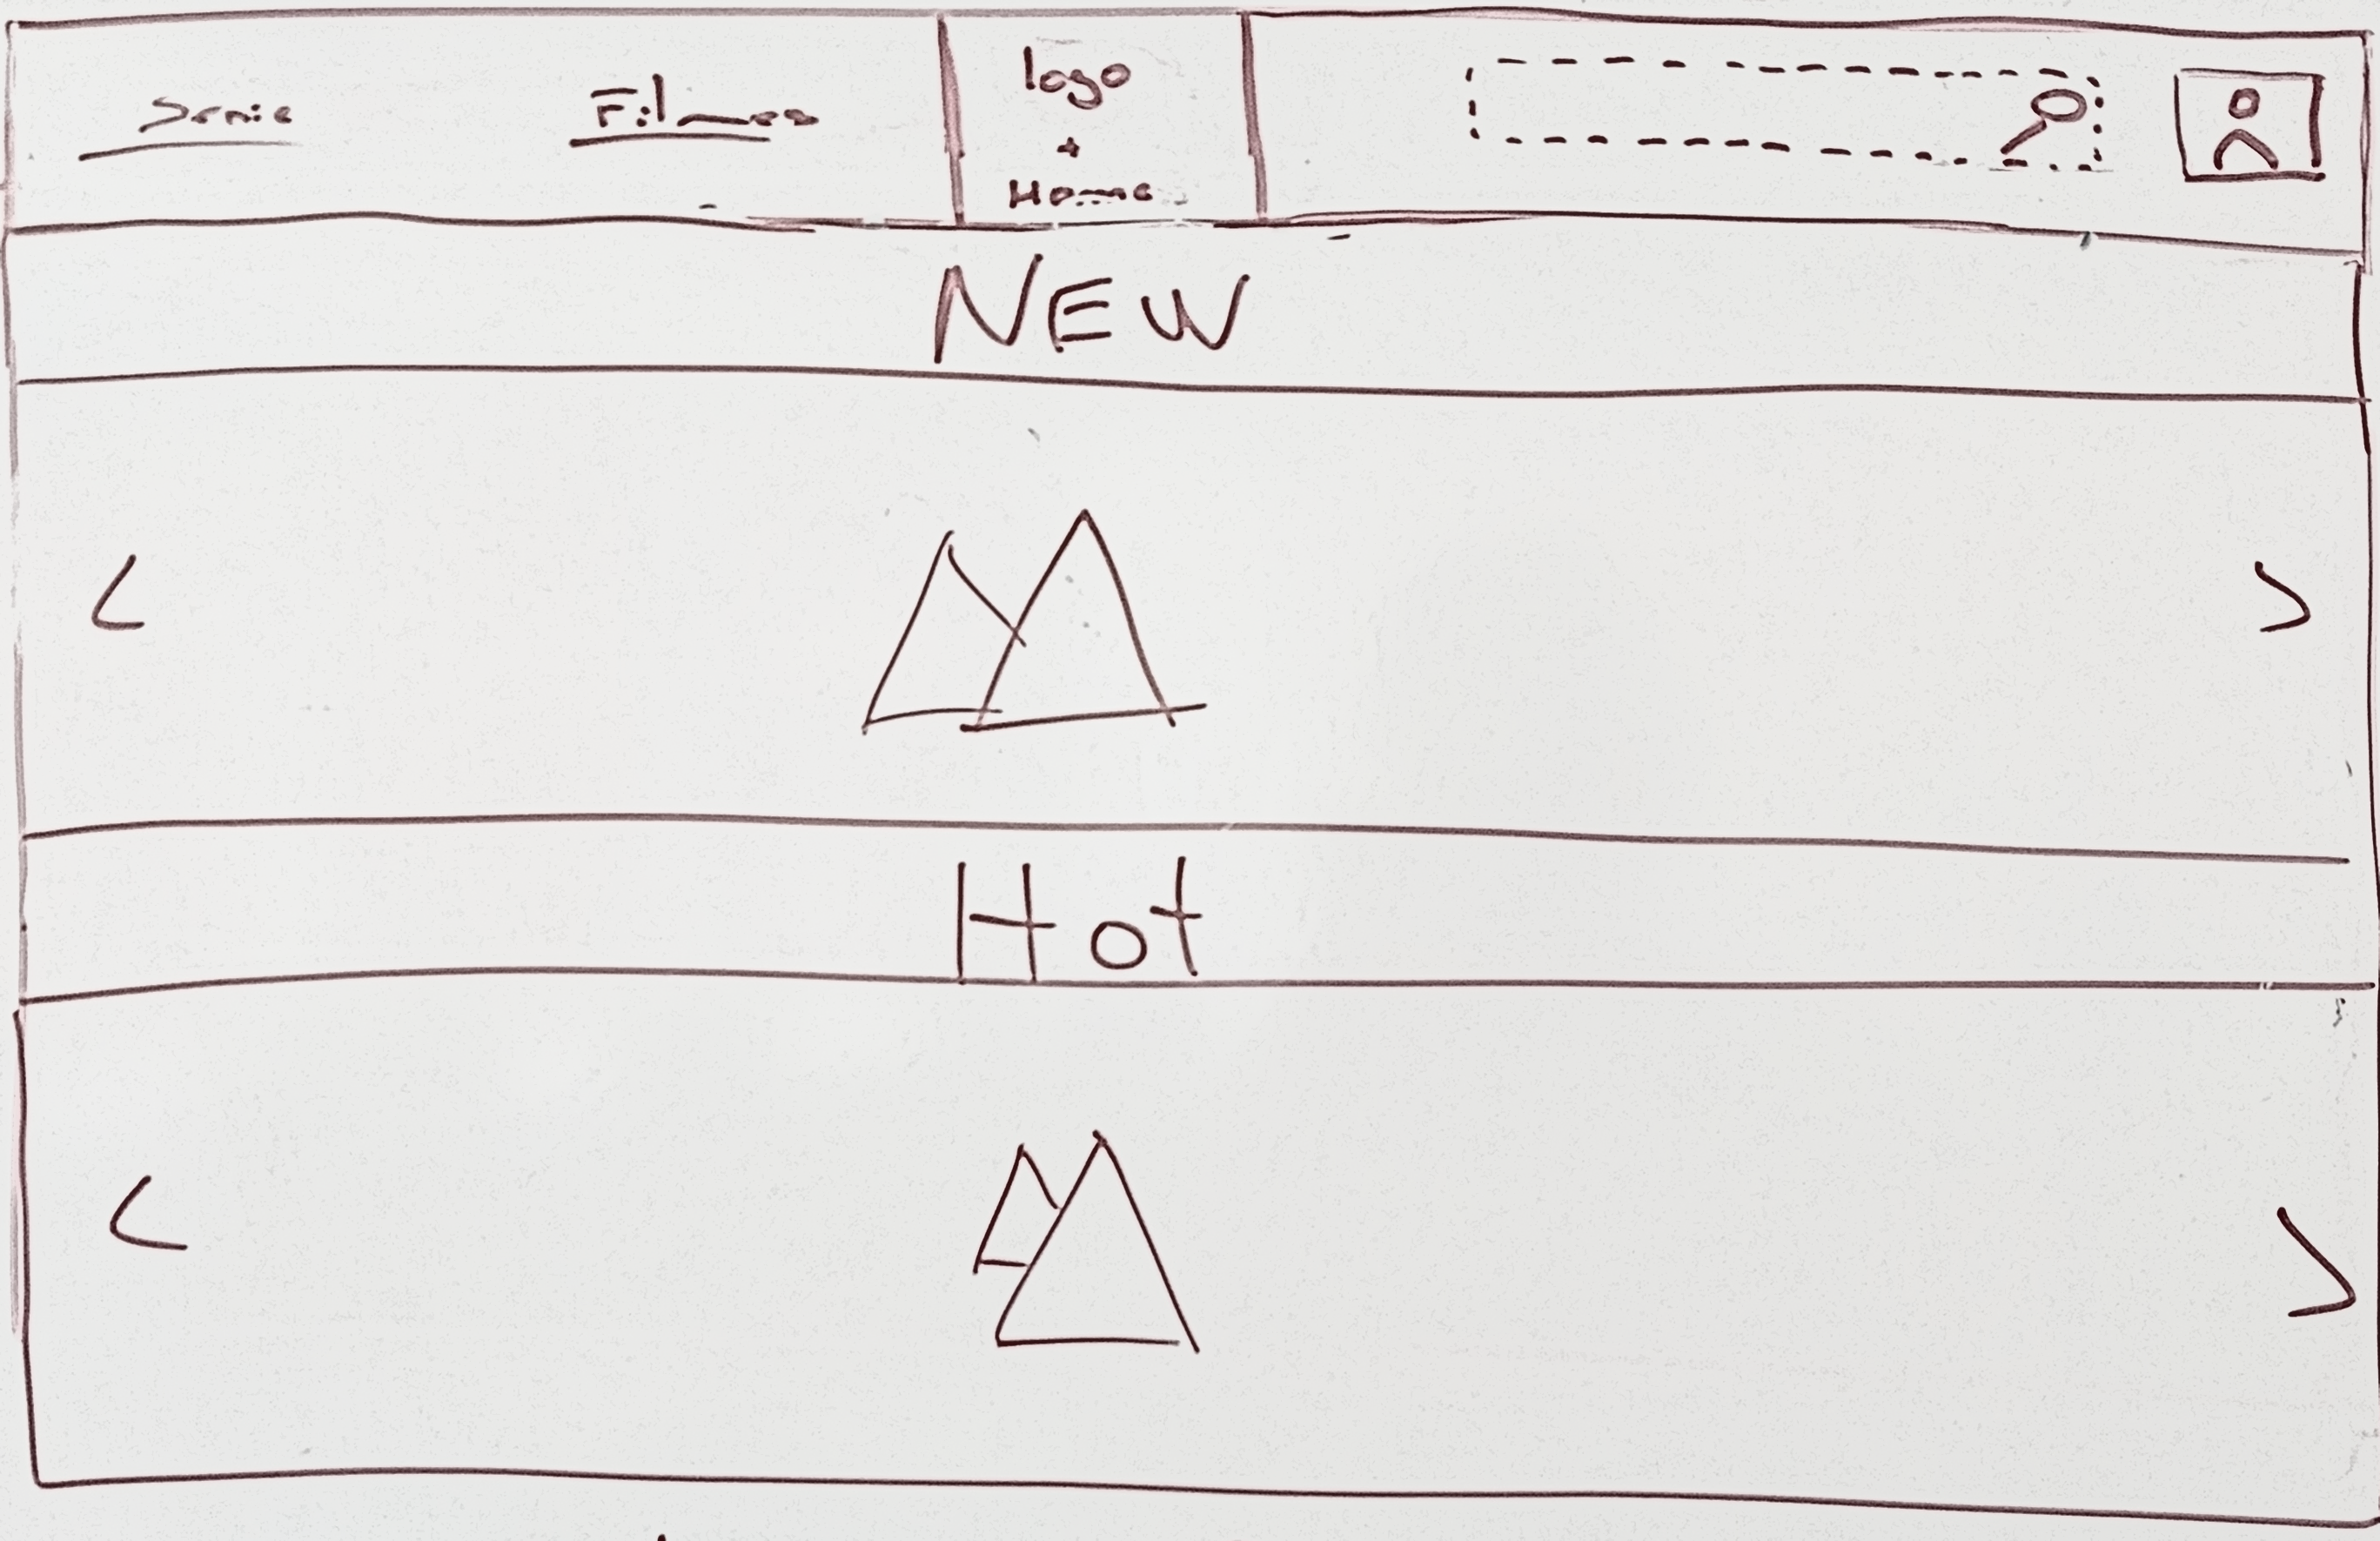 Serie
Filmes
logo
+
Home
NEW
<
>
Hot
<
>